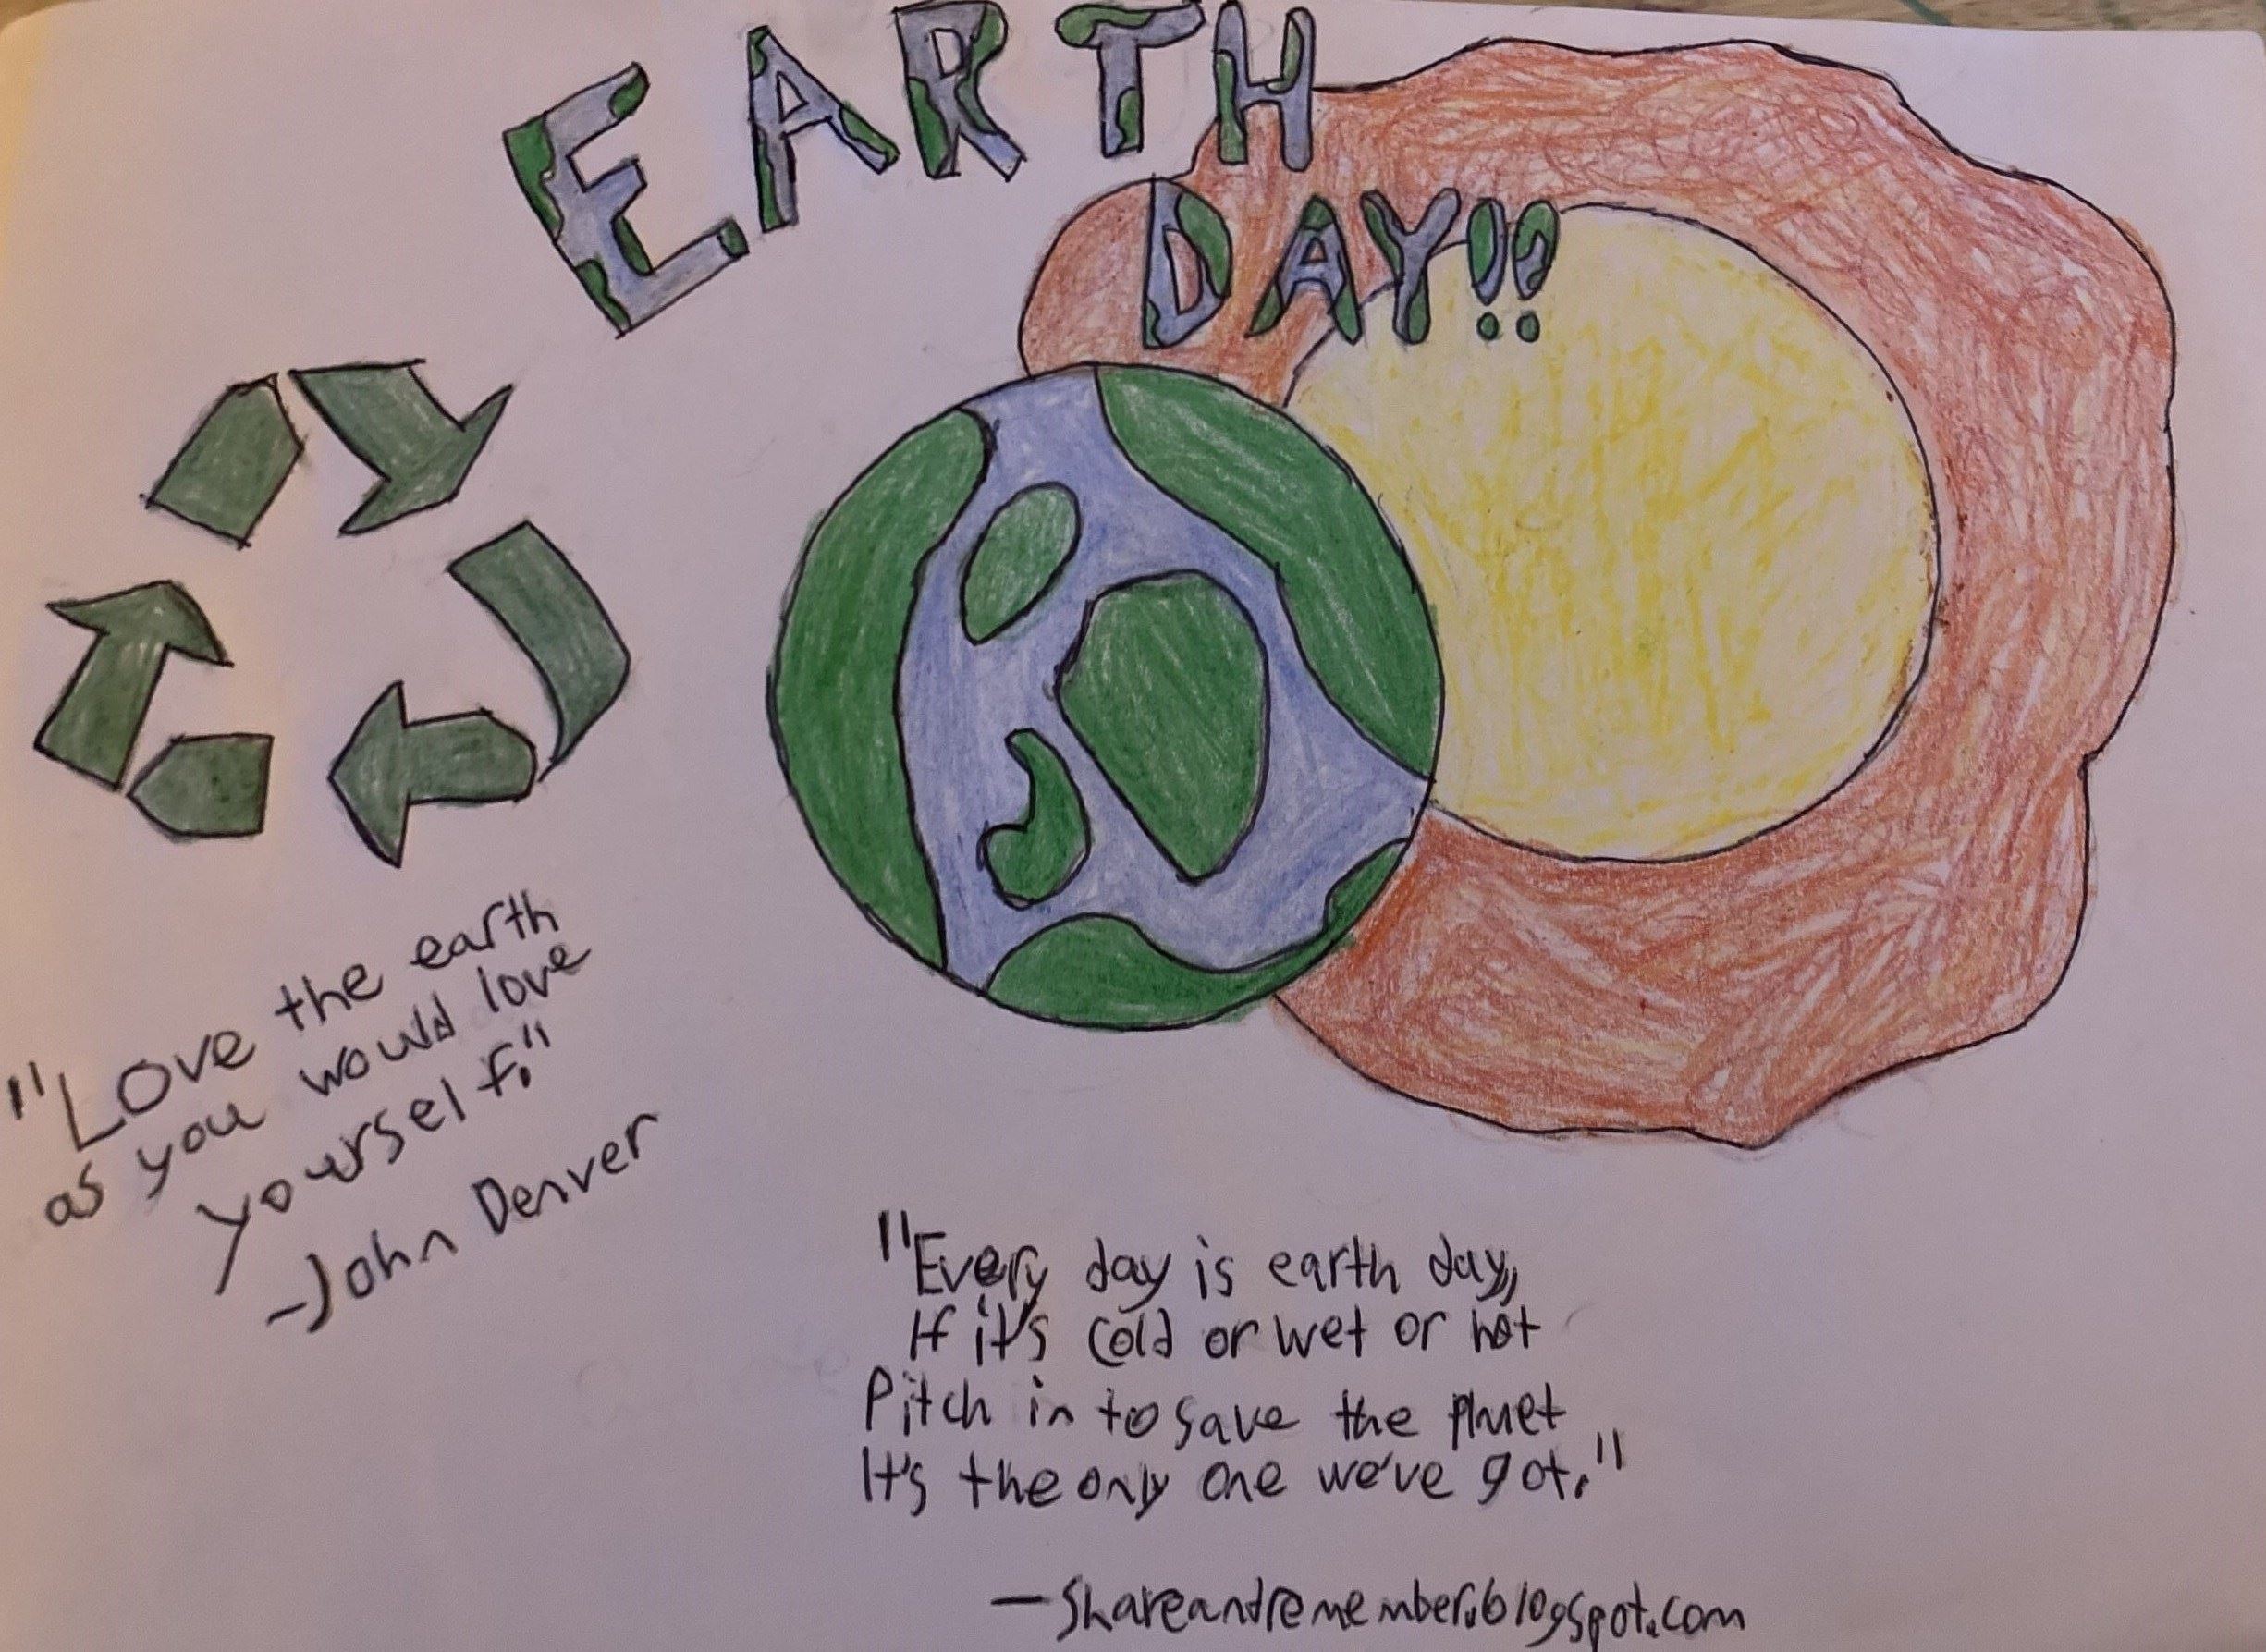 EARTH
DAY!!
"Love the earth
as you would love
yourself."
-John Denver
"Every day is earth day,
If it's cold or wet or hot
Pitch in to save the planet
It's the only one we've got."
— shareandremember.blogspot.com